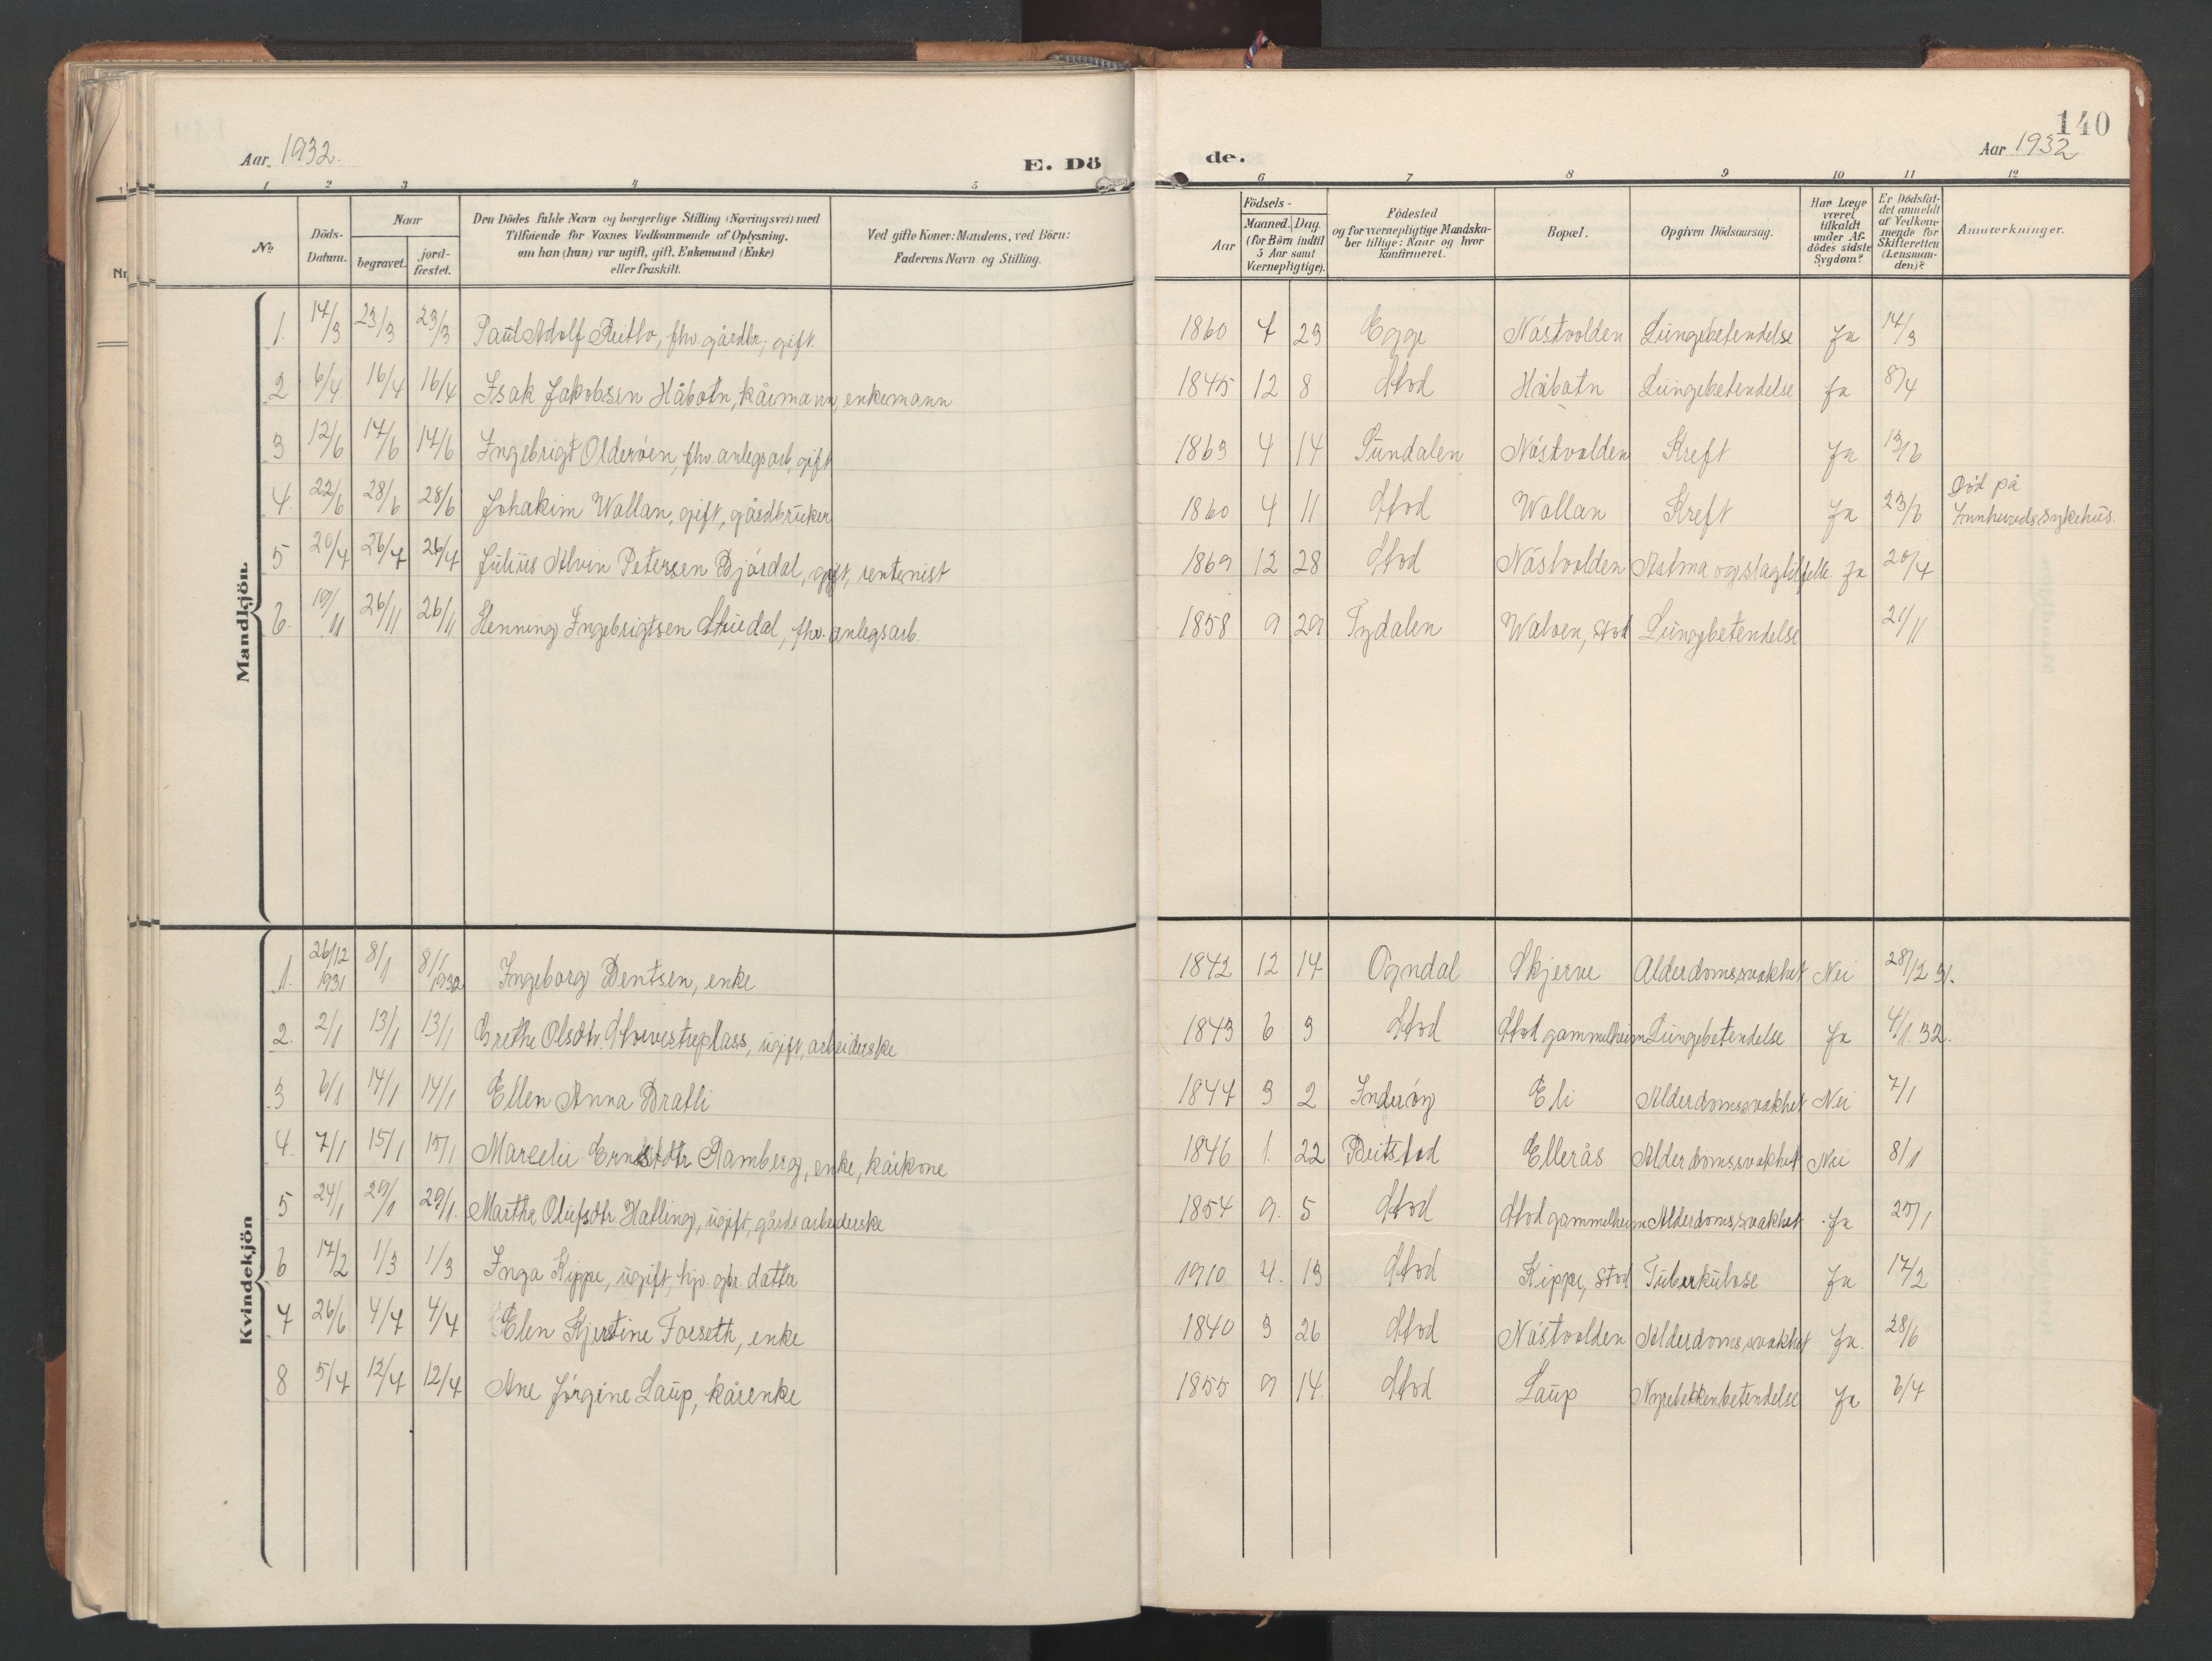 140
Aar. 1932.
E. Dö
de.
Aar 1932
1 2 3 4 5 6 7 8 9 10 11 12
No
Döds-Datum.
Naar
begravet.
jord-fæstet.
Den Dödes fulde Navn og borgerlige Stilling (Næringsvei) med
Tilföiende for Voxnes Vedkommende af Oplysning,
om han (hun) var ugift, gift, Enkemand (Enke)
eller fraskilt.
Ved gifte Koner: Mandens, ved Börn:
Faderens Navn og Stilling.
Födsels-
Aar
Maaned. Dag
(for Börn indtil
5 Aar samt
Værnepligtige).
Födested
og for værnepligtige Mandska-
ber tillige: Naar og hvor
konfirmeret.
Bopæl.
Opgiven Dödsaarsag.
Har Læge
været
tilkaldt
under Af-
dödes sidste
Sygdom?
Er Dödsfal-
det anmeldt
af Vedkom-
mende for
Skifteretten
(Lensman-
den)?
Anmærkninger.
Mandkjön.
1. 14/3 23/3 23/3 Paul Adolf Reitlo, fhv. gårdbr., gift. 1860 7 23 Egge Nåstvolden Lungebetendelse Ja 14/3
2 6/4. 16/4 16/4 Isak Jakobsen Håbotn, kårmann, enkemann 1845 12 8 Stod Håbotn Lungebetendelse Ja 8/4
3 12/6 17/6 17/6 Ingebrigt Olderøen, fhv. anlegsarb, gift 1863 4 14 Sundalen Nåstvolden Kreft Ja 13/6
4. 22/6 28/6 28/6 Johakim Wollan, gift, gårdbruker 1860 4 11 Stod Wollan Kreft Ja 23/6 Død på
Innherreds sykehus.
5 20/7 26/7 26/7 Julius Alvin Petersen Bjørdal, gift, rentenist 1869 12 28 Stod Nåstvolden Astma og slagtilfelle. Ja 20/7
6. 19/11 26/11 26/11 Henning Ingebrigtsen Stuedal, fhv. anlegsarb. 1858 9 29 Tydalen Waløen, Stod Lungebetendelse 21/11
Kvindekjön
1. 26/12 1931 8/1 8/1 1932 Ingeborg Bentsen, enke 1842 12 14 Ogndal Skjerve Alderdomssvakhet Nei 28/12 31.
2. 2/1 13/1 13/1 Grethe Olsdtr. Storvestreplass, ugift, arbeiderske 1843 6 3 Stod Stod gammelheim Lungebetendelse Ja 4/1. 32.
3 6/1 14/1 14/1 Ellen Anna Bratli 1844 3 2 Inderøy Eli Alderdomssvakhet Nei 7/1
4. 7/1 15/1 15/1 Marselie Ernstdtr Ramberg, enke, kårkone 1846 1. 22 Beitstad Ellerås Alderdomssvakhet Nei 8/1
5 24/1 29/1 29/1. Martha Olufsdtr Hatling, ugift, gårdsarbeiderske 1854 9. 5 Stod Stod gammelheim Alderdomssvakhet Ja 25/1
6 17/2 1/3 1/3 Inga Kippe, ugift, hjv. gbr. datter 1910 4. 13 Stod Kippe, Stod Tuberkulose Ja 17/2
7 26/6 4/7 4/7 Elen Kjerstine Forseth, enke 1840 3 26 Stod Nåstvolden Alderdomssvakhet Ja. 28/6
8 5/7 12/7 12/7 Ane Jørgine Laup, kårenke 1855 9 14. Stod Laup Nyrebekkenbetendelse Ja 6/7